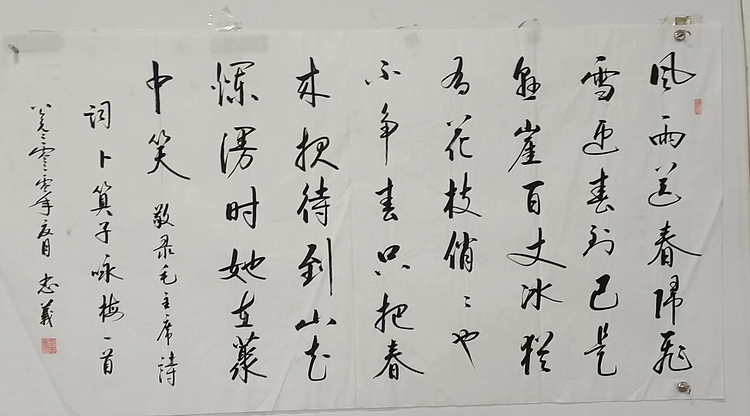 风雨送春帰飛
雪迎春到已是
懸崖百丈冰猶
有花枝俏〻也
不争春只把春
來报待到山花
爛漫時她在叢
中笑 敬录毛主席詩
詞卜算子咏梅一首
公元二零二零年夏月